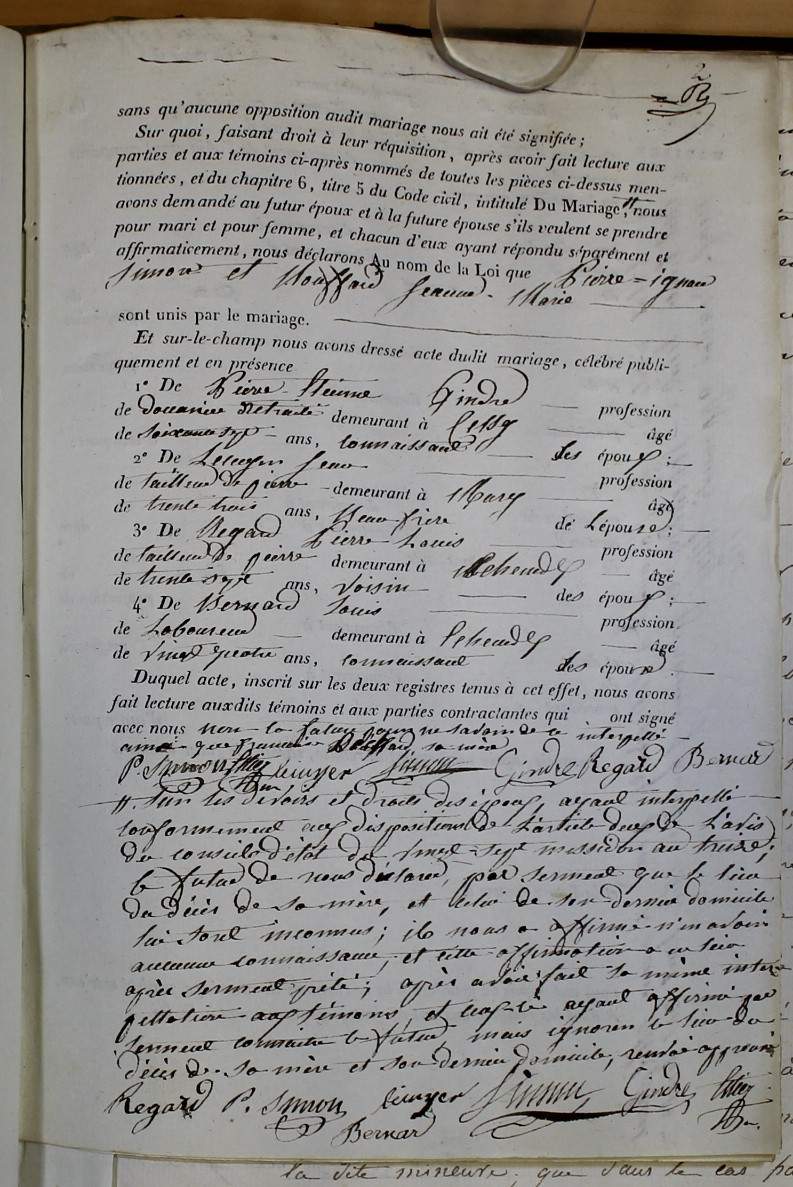 2
sans qu'aucune opposition audit mariage nous ait été signifiée ;
Sur quoi, faisant droit à leur réquisition, après avoir fait lecture aux
parties et aux témoins ci-après nommés de toutes les pièces ci-dessus men-
tionnées, et du chapitre 6, titre 5 du Code civil, intitulé Du Mariage, # nous
avons demandé au futur époux et à la future épouse s'ils veulent se prendre
pour mari et pour femme, et chacun d'eux ayant répondu séparément et
affirmativement, nous déclarons Au nom de la Loi que Pierre = ignace
Simon et Jeanne-Marie
sont unis par le mariage.
Et sur-le-champ nous avons dressé acte dudit mariage, célébré publi-
quement et en présence
1° De Pierre Etienne Gindre profession
de douanier Retraité demeurant à Cessy âgé
de soixante sept ans, connaissant des époux ;
2° De Lecuyer Jean profession
de tailleur de pierre demeurant à âgé
de trente trois ans, Beau frère de L'épouse ;
3° De Regard Pierre Louis profession
de tailleur de pierre demeurant à Echenevex âgé
de trente sept ans, voisin des époux ;
4° De Bernard Louis profession
de Laboureur demeurant à Echenevex âgé
de vingt quatre ans, connaissant des époux.
Duquel acte, inscrit sur les deux registres tenus à cet effet, nous avons
fait lecture auxdits témoins et aux parties contractantes qui ont signé
avec nous non la future pour ne savoir de ce interpellée
ainsi que sa mère
P. Simon lecuyer Simon Gindre Regard Bernard
#. Sur les devoirs et droits des époux, ayant interpellé
conformement aux dispositions de L'article deux de L'avis
du conseil d'état du vingt-sept messidor an treize,
le futur de nous déclarer, par serment que le lieu
du décès de sa mère, et celui de son dernier domicile
lui sont inconnus ; il nous a affirmé n'en avoir
aucune connaissance, et cette affirmation a eu lieu
après serment prêté ; après avoir fait la même inter
pellation aux témoins, et ceux-ci ayant affirmé par
serment connaitre le futur, mais ignorer le lieu du
décès de sa mère et son dernier domicile, renvoi approuvé
Regard P. Simon lecuyer Simon Gindre
Bernard
la dite mineure, que dans le cas